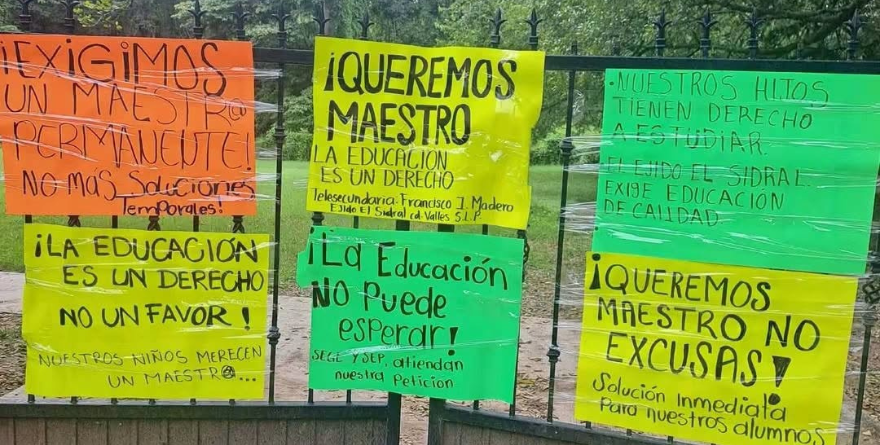 ¡EXIGIMOS
UN MAESTR@
PERMANENTE!
NO MÁS SOLUCIONES
TEMPORALES!
¡QUEREMOS
MAESTRO
LA EDUCACIÓN
ES UN DERECHO
Telesecundaria: Francisco I. Madero
Ejido El Sidral cd. Valles S.L.P.
·NUESTROS HIJOS
TIENEN DERECHO
A ESTUDIAR.
EL EJIDO EL SIDRAL.
EXIGE EDUCACIÓN
DE CALIDAD.
¡LA EDUCACIÓN
ES UN DERECHO
NO UN FAVOR!
NUESTROS NIÑOS MERECEN
UN MAESTR@...
¡La Educación
NO Puede
esperar!
SEGE Y SEP, atiendan
nuestra Peticion
¡QUEREMOS
MAESTRO NO
EXCUSAS!
Solución Inmediata
Para nuestros alumnos